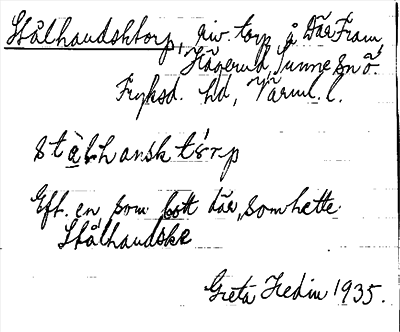 Stålhandsktorp, riv. torp å Där Fram,
Hågerud, Sunne sn ö.
Fryksd. hd, Värml. l.
stålhansktorp
Eft. en, som bott där, som hette
Stålhandske
Greta Hedin 1935.